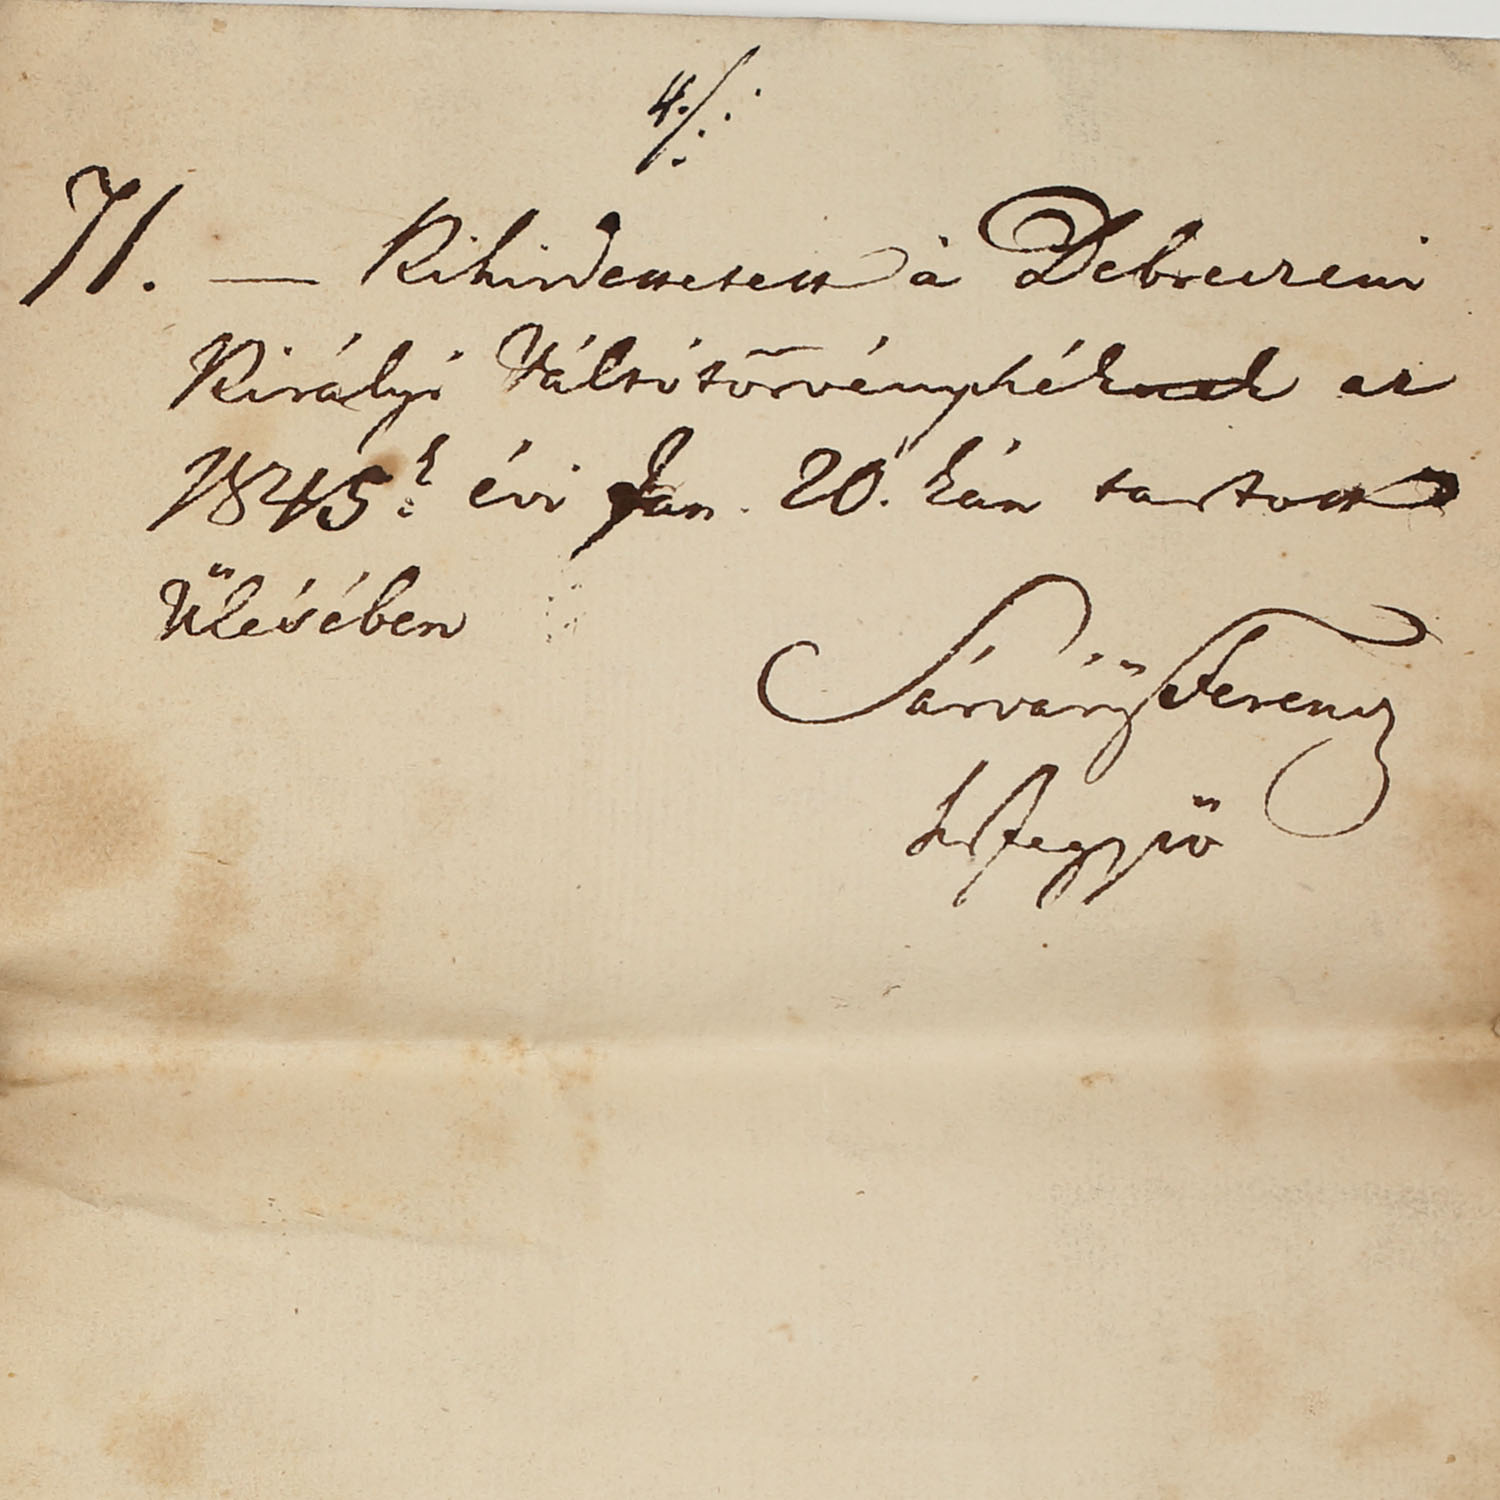 4./.
71. — Kihirdettetett a' Debreczeni
Királyi Váltótörvényszéknek az
1845k évi Jan. 20. kán tartott
Ülésében
Sárváry Ferencz
Jegyző